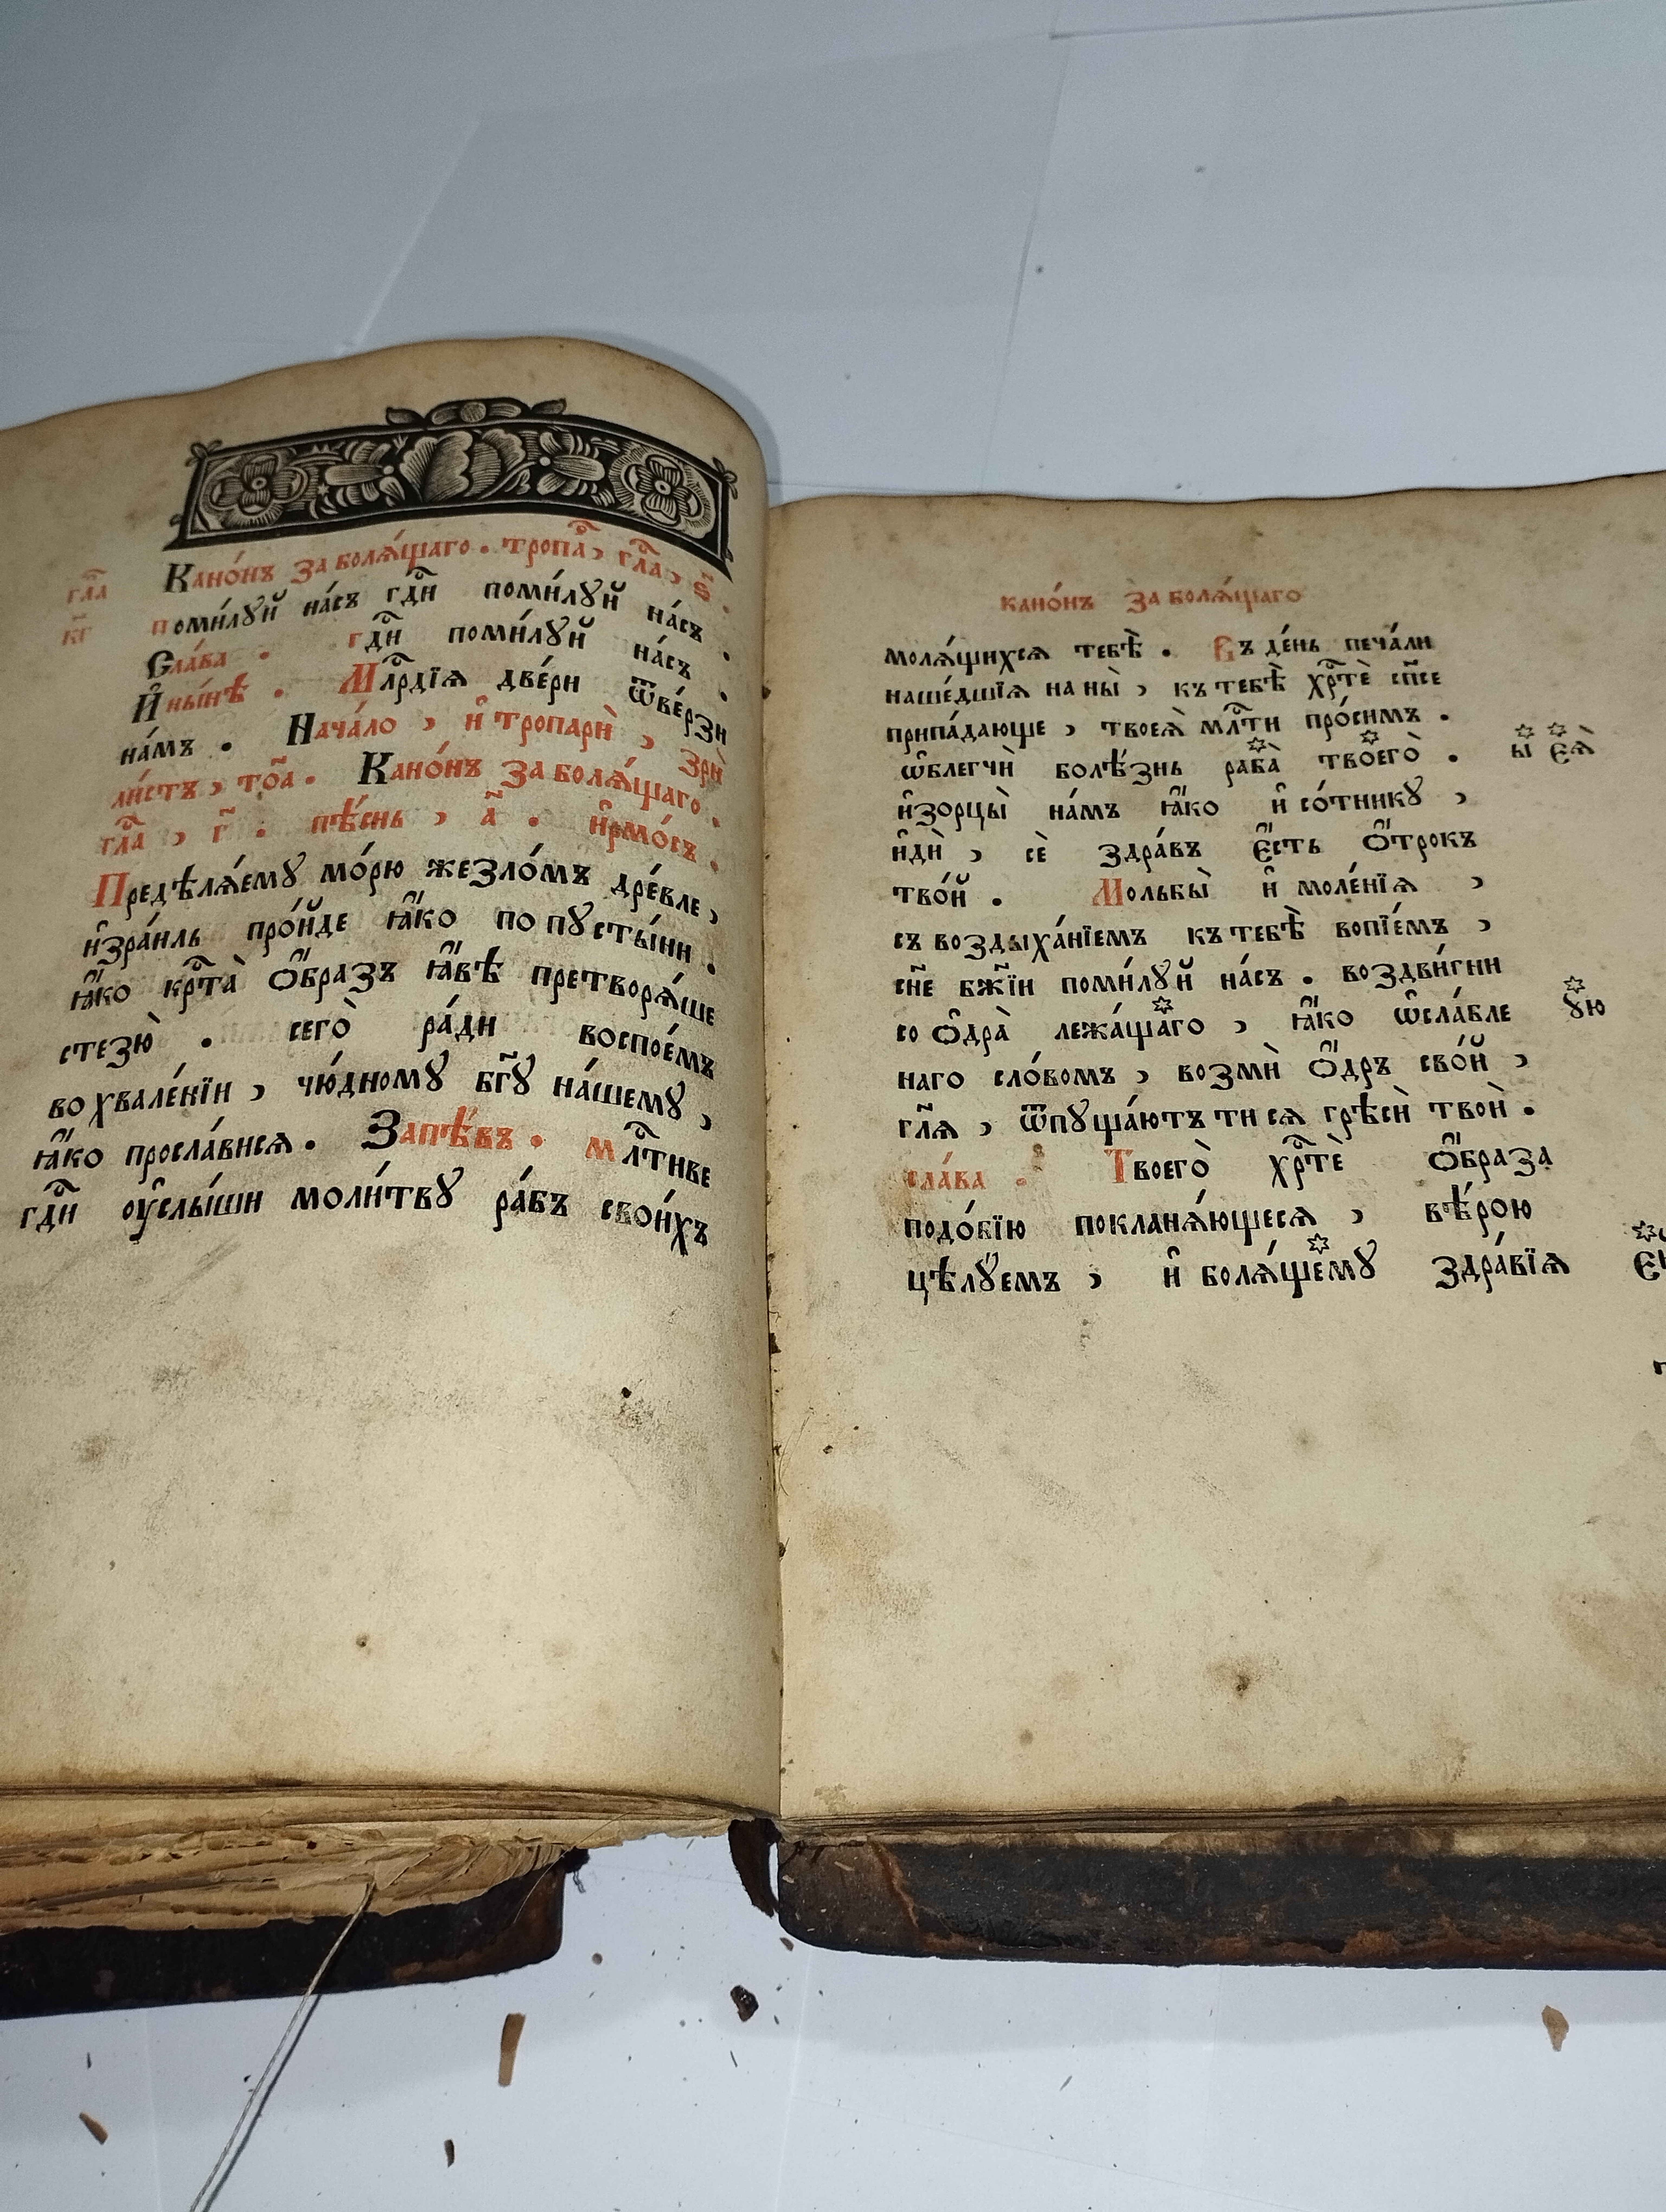 гл҃а
кг҃
Кано́нъ за болѧ́щаго . тропа̀, гл҃а, ѕ҃ .
поми́лꙋй на́съ гдⷭ҇и поми́лꙋй на́съ .
Сла́ва . гдⷭ҇и поми́лꙋй на́съ .
И҆ ны́нѣ . Млⷭ҇рдїѧ две́ри ѿве́рзи
на́мъ . Нача́ло , и҆ тропарѝ , Зрѝ
ли́стъ , то҃а . Кано́нъ за болѧ́щаго .
гл҃а , г҃ . пѣ́снь , а҃ . и҆рмо́съ .
Предѣлѧ́емꙋ мо́рю жезло́мъ дре́вле ,
и҆зра́иль про́йде ꙗ҆́ко по пꙋсты́ни .
ꙗ҆́ко крⷭ҇та̀ ѻ҆́бразъ ꙗ҆́вѣ претворѧ́ше
стезю̀ . сего̀ ра́ди воспое́мъ
во хвале́нїи , чю́дномꙋ бг҃ꙋ на́шемꙋ ,
ꙗ҆́ко просла́висѧ . Запѣ́въ . млⷭ҇тиве
гдⷭ҇и ᲂу҆слы́ши моли́твꙋ ра́бъ свои́хъ
кано́нъ за болѧ́щаго
молѧ́щихсѧ тебѣ̀ . Въ де́нь печа́ли
наше́дшїѧ на ны̀ , къ тебѣ̀ хрⷭ҇тѐ сп҃се
припа́дающе , твоеѧ̀ млⷭ҇ти про́симъ .
ѡ҆блегчѝ болѣ́знь раба̀ твоего̀ . ы є҆ѧ̀
и҆зорцы̀ на́мъ ꙗ҆́ко и҆ со́тникꙋ ,
и҆дѝ , сѐ здра́въ є҆́сть ѻ҆́трокъ
тво́й . Мольбы̀ и҆ моле́нїѧ ,
съ воздыха́нїемъ къ тебѣ̀ вопїе́мъ ,
сн҃е бж҃їи поми́лꙋй на́съ . воздви́гни
со ѻ҆дра̀ лежа́щаго , ꙗ҆́ко ѡ҆сла́бле ꙋю
наго сло́вомъ , возмѝ ѻ҆́дръ сво́й ,
гл҃ѧ , ѿпꙋща́ютъ ти сѧ грѣсѝ твоѝ .
сла́ва . Твоего̀ хрⷭ҇тѐ ѻ҆́браза
подо́бїю покланѧ́ющесѧ , вѣ́рою
цѣлꙋ́емъ , и҆ болѧ́щемꙋ здра́вїѧ